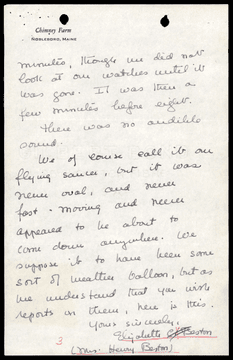 Chimney Farm
Nobleboro, Maine
minutes, though we did not
look at our watches until it
was gone. It was then a
few minutes before eight.
There was no audible
sound.
We of course call it our
flying saucer, but it was
never oval, and never
fast-moving and never
appeared to be about to
come down anywhere. We
suppose it to have been some
sort of weather balloon, but as
we understand that you wish
reports on them, here is this.
Yours sincerely,
Elizabeth C. Beston
3
(Mrs. Henry Beston)